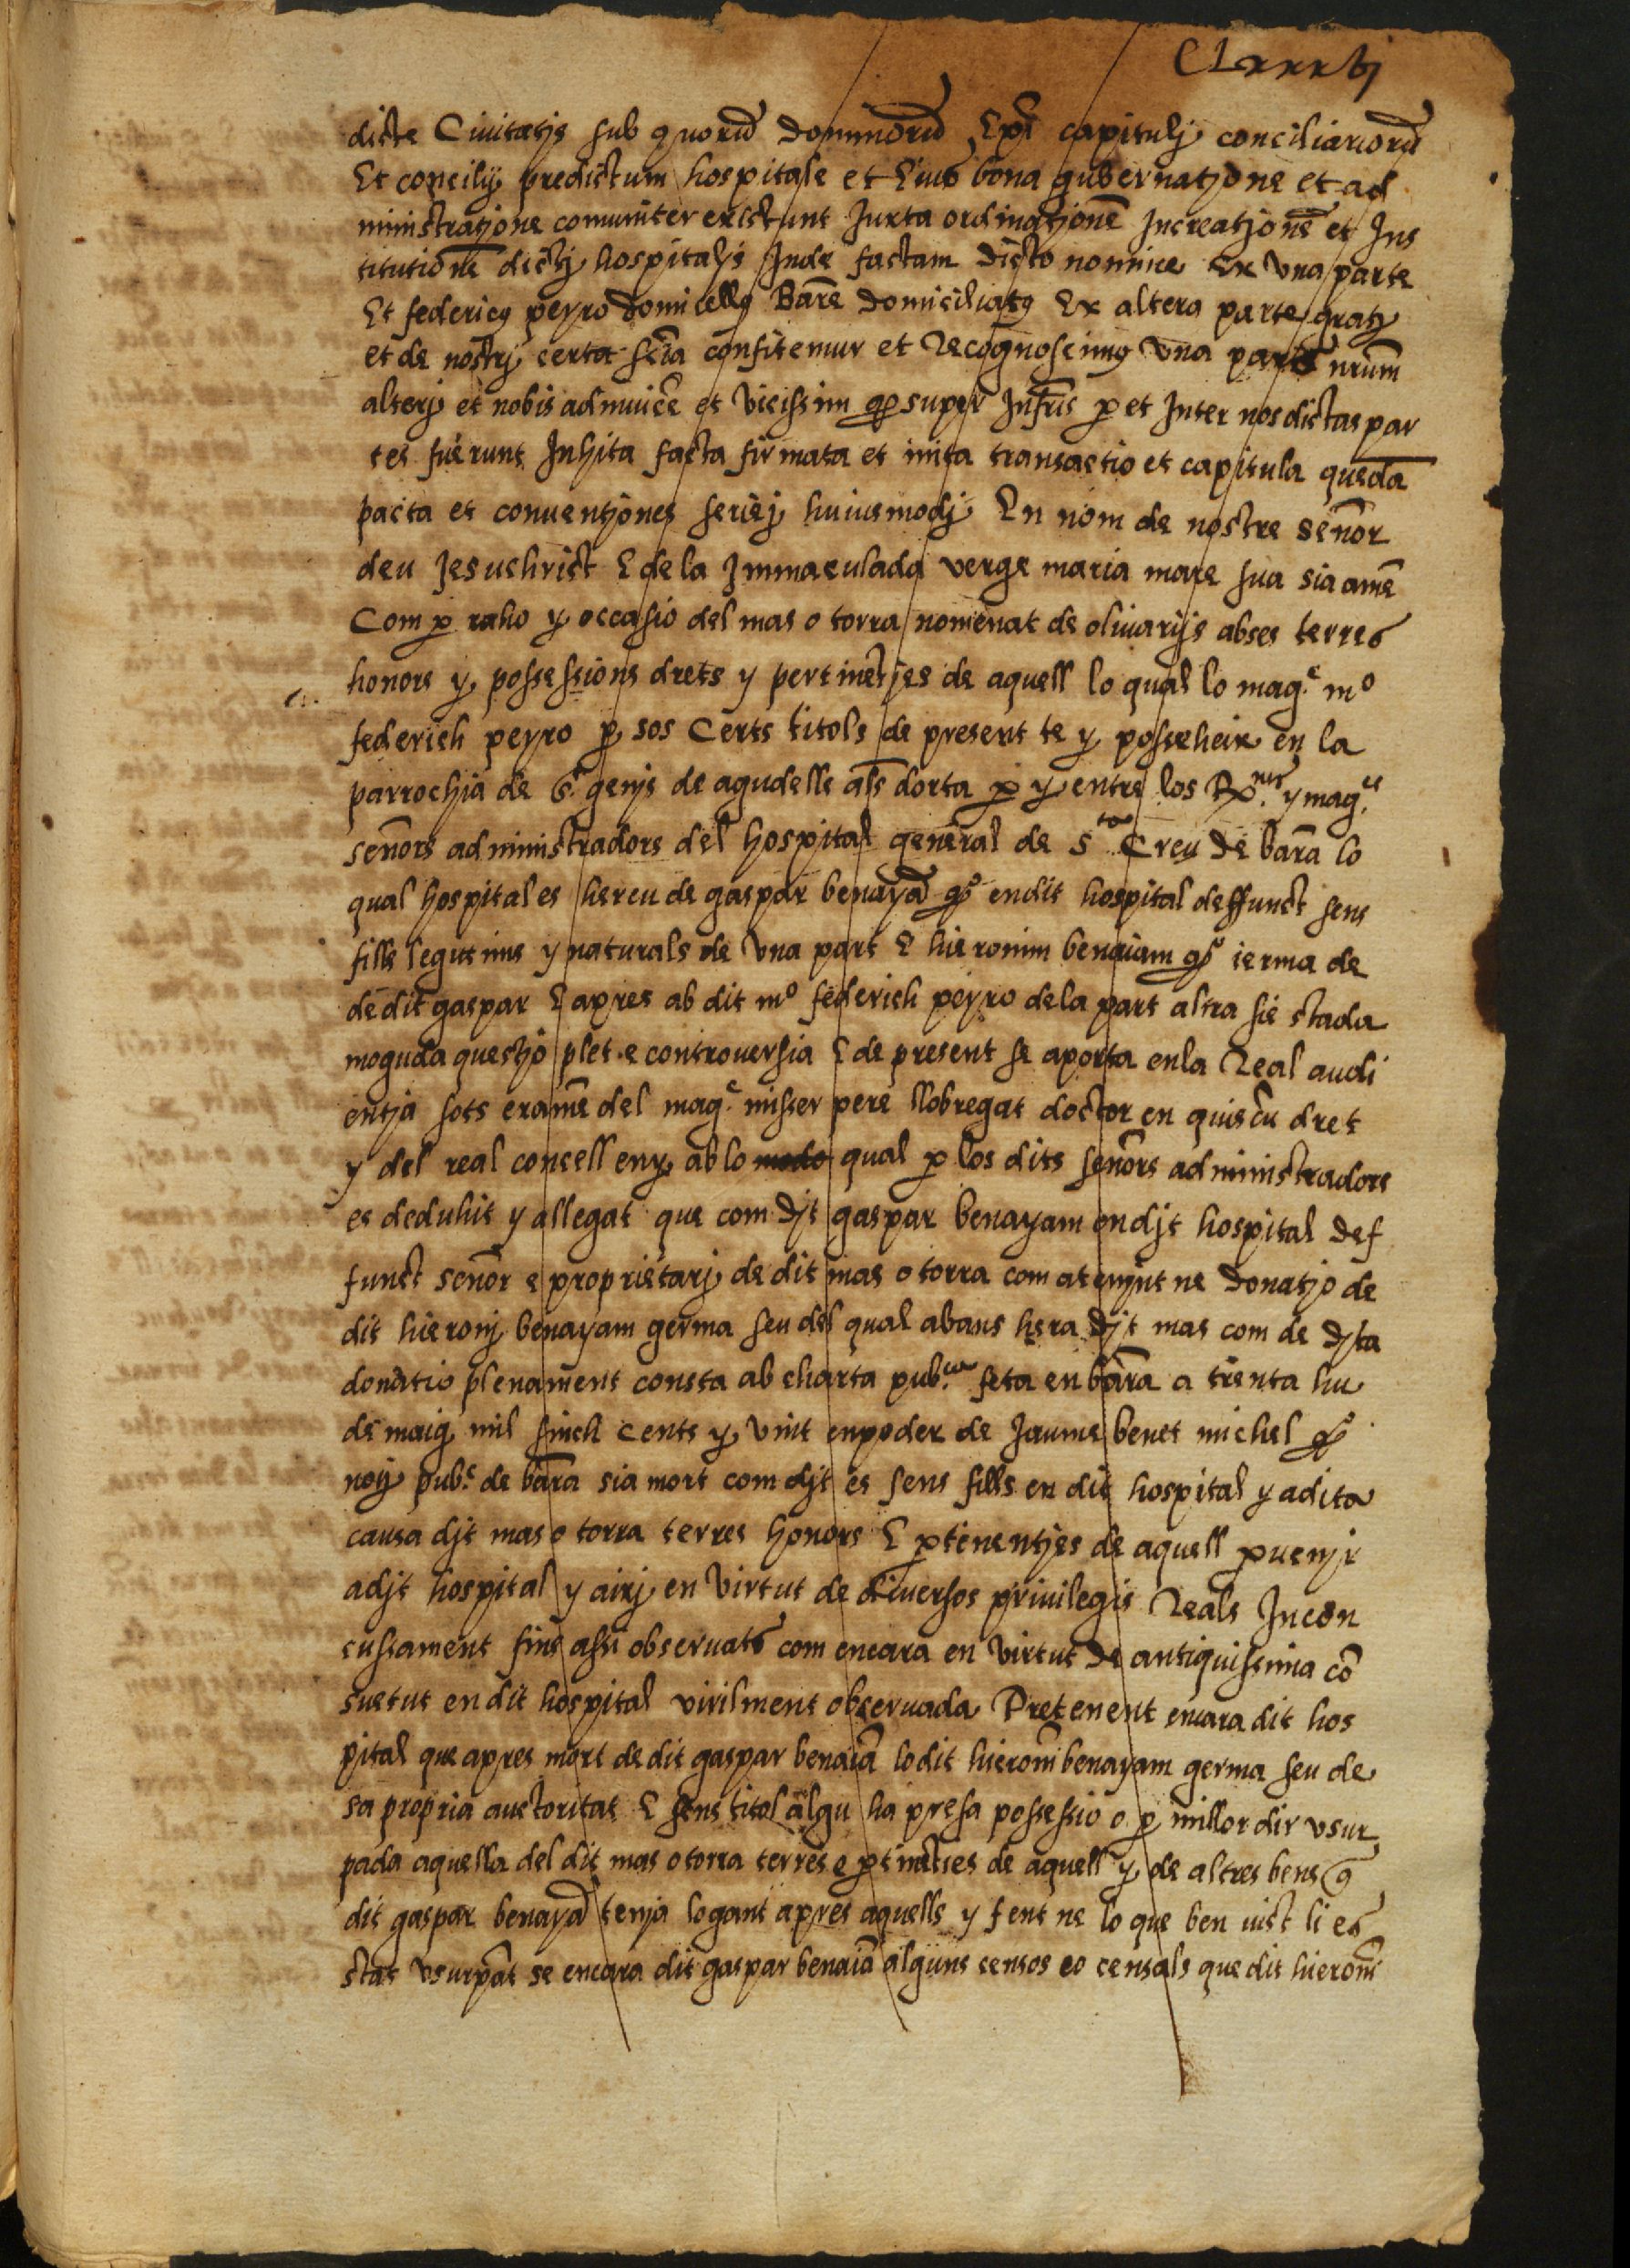 CLxxxvj
dicte Ciuitatis sub quorū dominorū Expī capitulj conciliariorū
Et concilij predictum hospitale et Eius bona gubernatjone et ad
ministratjone comuniter existunt Juxta ordinatjonē Jncreatjonē et Jns
titutionē dictj hospitalis Jnde factam dicto nomine Ex vna parte
Et federicus peyro domicellus Barē domiciliatus Ex altera parte gratis
et de nostrj certa scīa confitemur et Recognoscimus vna pars nr̄um
alterj et nobis adinuicē et vicissim qp super Jnfr̄is p et Jnter nos dictas par
tes fuerunt Jnhita facta firmata et inita transactio et capitula quedā
pacta et conuentjones seriej huiusmodj En nom de nostre señor
deu Jesuchrist E de la Jmmaculada verge maria mare sua sia amē
Com p raho y occasio del mas o torra nomenat de oliuarijs abses terres
honors y possessions drets y pertinētjes de aquell lo qual lo mag.ᶜ mº
federich peyro p sos Certs titols de present te y posseheix en la
parrochia de S.ᵗ genjs de agudells als̄ dorta p y entre los Rx.ⁿᵗˢ y mag.ᶜˢ
señors administradors del hospital general de S.ᵗᵃ Creu de barā lo
qual hospital es hereu de gaspar benayā qº endit hospital deffunct sens
fills legitims y naturals de vna part E hieronim benaiam qº ierma de
de dit gaspar E apres ab dit mº federich peyro dela part altra sie stada
moguda questjo plet e controuersia E de present se aporta enla Real audi
entja sots examē del mag.ᶜ misser pere llobregat doctor en quiscū dret
y del real consell eny ab lo modo qual p los dits señors administradors
es deduhit y allegat que com djt gaspar benayam en djt hospital def
funct señor e proprietarj de dit mas o torra com atenjnt ne donatjo de
dit hieronj benayam germa seu del qual abans hera djt mas com de djta
donatio plenament consta ab charta pub.ᶜᵃ feta en barā a trenta hu
de maig mil sinch cents y vint en poder de Jaume benet michel qº
noij pub.ᶜ de barā sia mort com djt es sens fills en dit hospital y adita
causa djt mas o torra terres honors E ptinentjes de aquell puenjr
adjt hospital y airj en virtut de diuersos priuilegis Reals Jncon
cussament fins assi obseruats com encara en virtut de antiquissima cō
suetut en dit hospital virilment obseruada Pretenent encara dit hos
pital que apres mort de dit gaspar benaiā lo dit hieronī benayam germa seu de
sa propria auctoritat E sens titol algu ha presa possessio o p millor dir vsur
pada aquella del dit mas o torra terres e ptinēties de aquell y de altres bens q
dit gaspar benayā tenja logant apres aquells y fent ne lo que ben vist li es
stat vsurpāt se encara dit gaspar benaiā alguns censos eo censals que dit hieronī